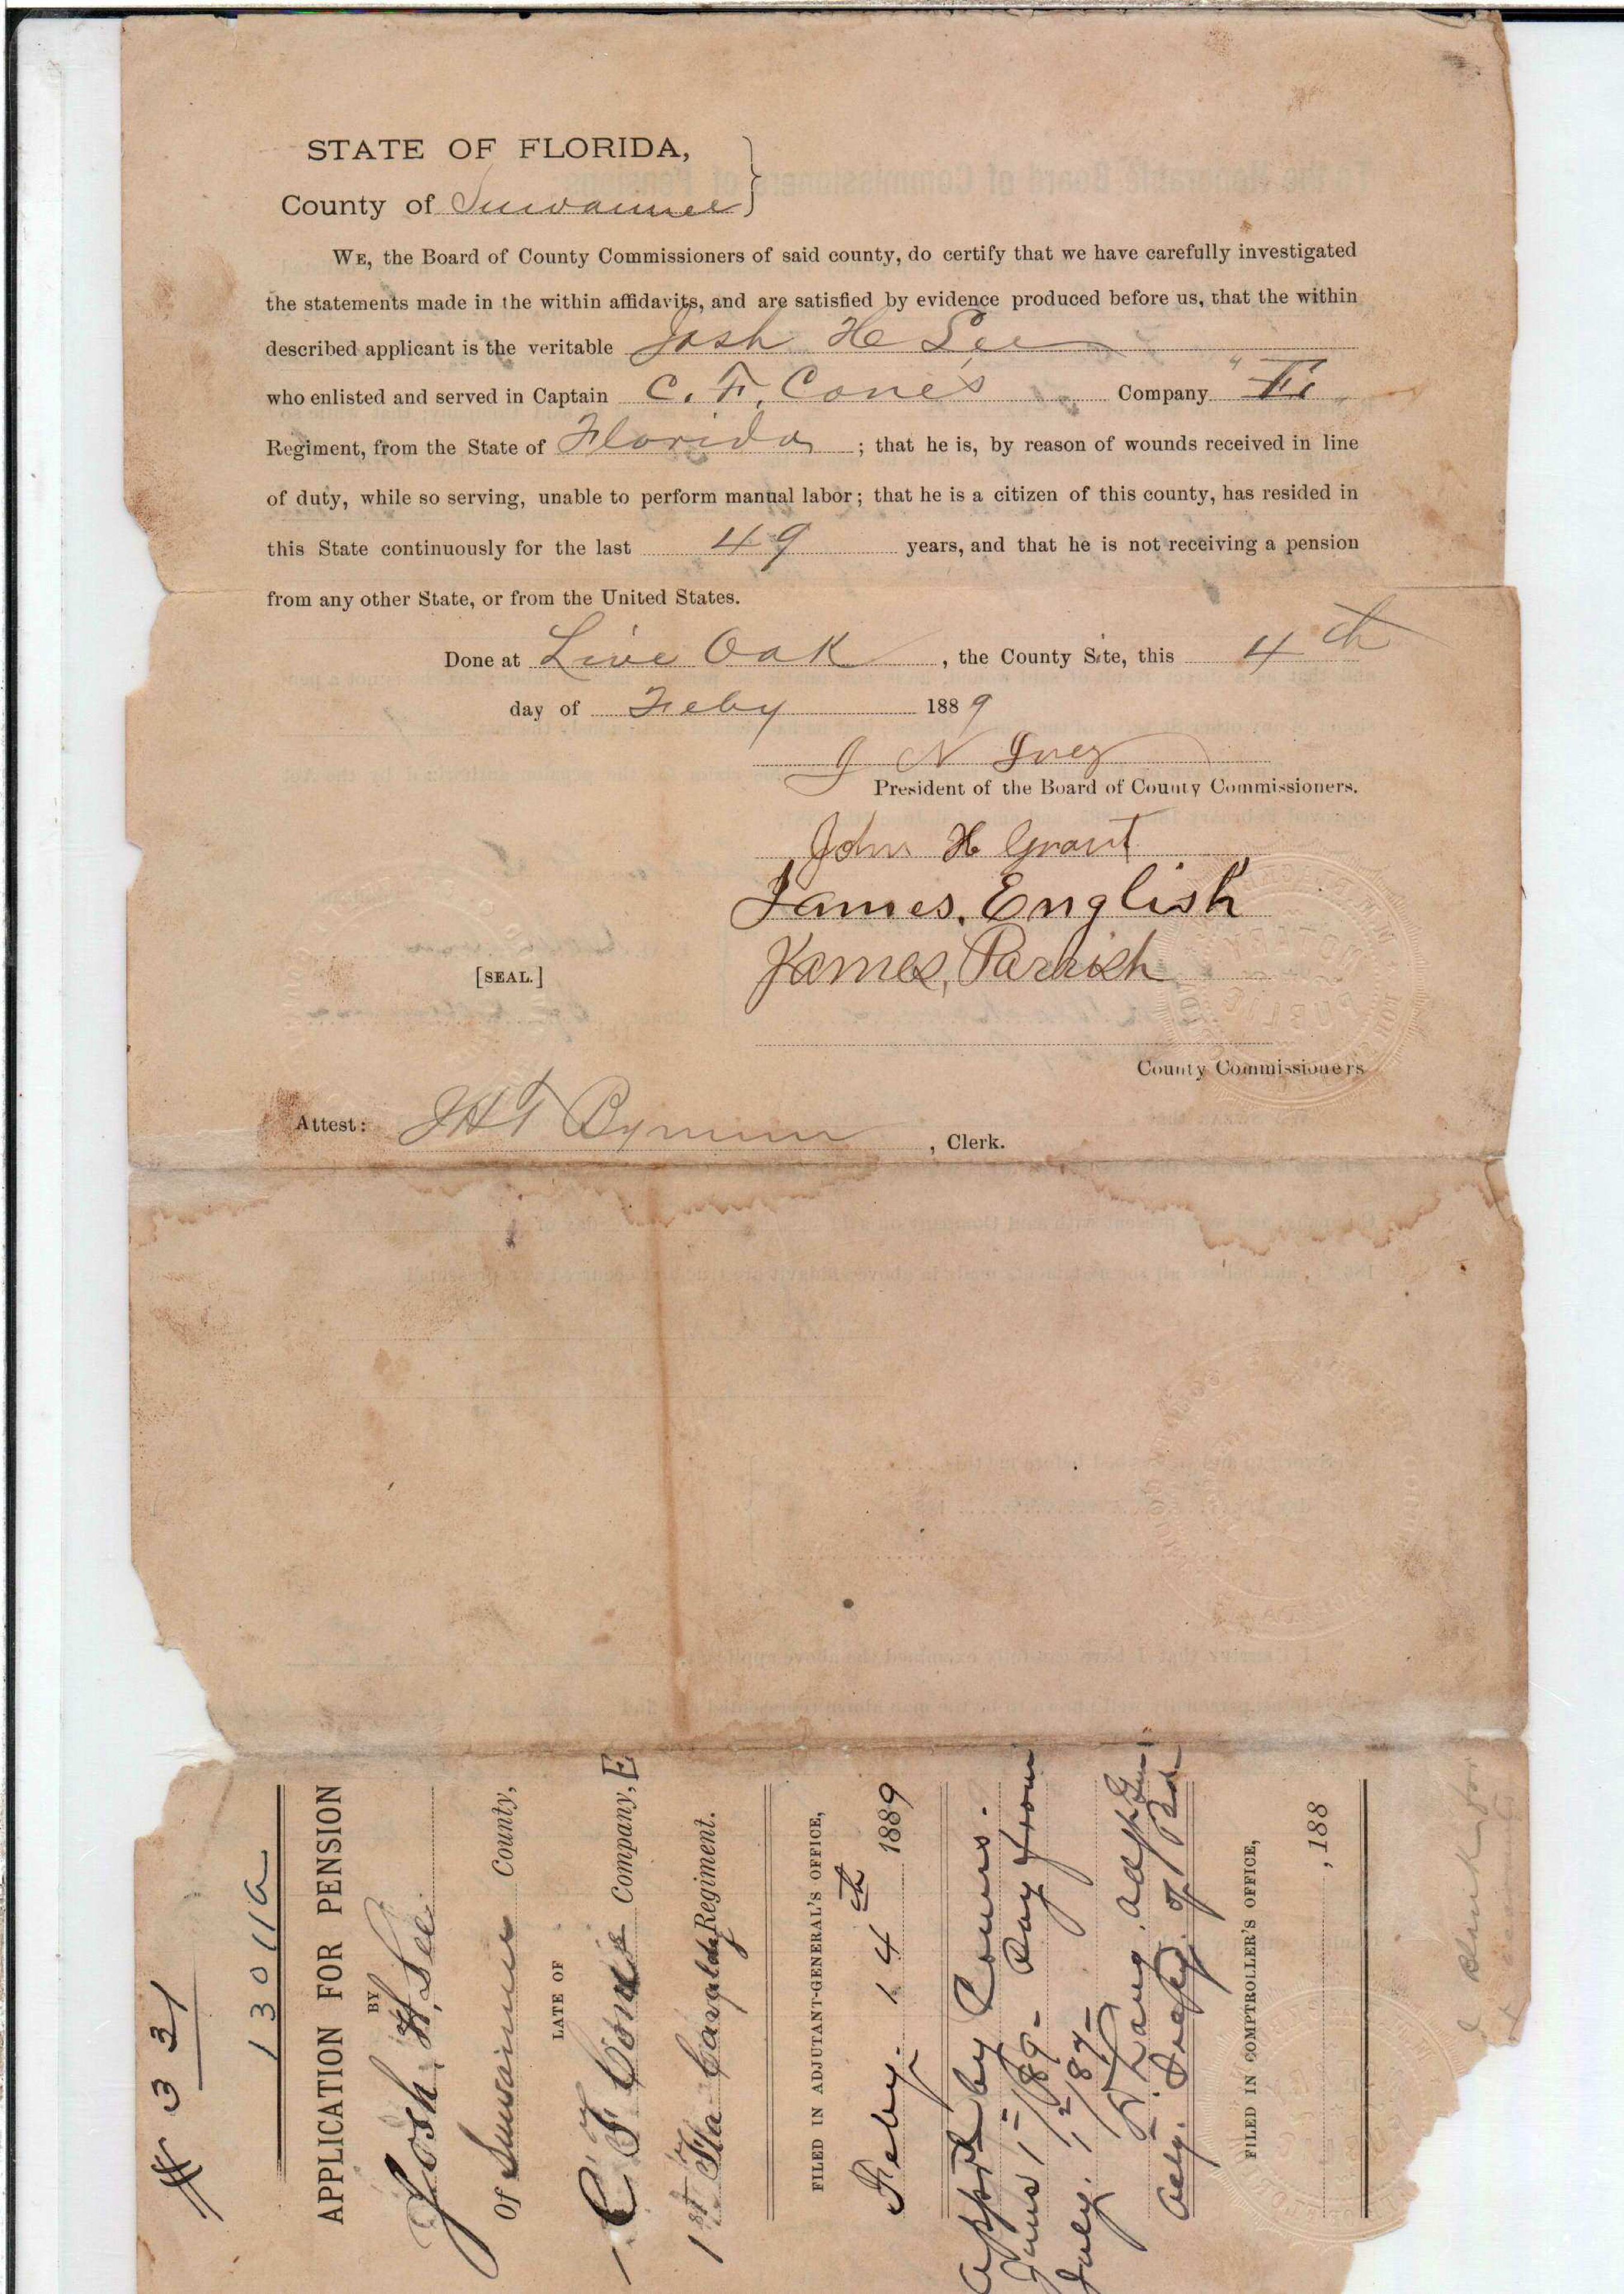 STATE OF FLORIDA,
County of Suwannee
WE, the Board of County Commissioners of said county, do certify that we have carefully investigated
the statements made in the within affidavits, and are satisfied by evidence produced before us, that the within
described applicant is the veritable Josh H See
who enlisted and served in Captain C. F. Cone's Company "E
Regiment, from the State of Florida; that he is, by reason of wounds received in line
of duty, while so serving, unable to perform manual labor; that he is a citizen of this county, has resided in
this State continuously for the last 49 years, and that he is not receiving a pension
from any other State, or from the United States.
Done at Live Oak, the County Site, this 4th
day of Feby 1889
J N Ivey
President of the Board of County Commissioners.
John H Grant
James. English
James, Parrish
[SEAL.]
County Commissioners
Attest: JHT Bynum, Clerk.
# 331
13011a
APPLICATION FOR PENSION
BY
Josh. H. See.
Of Suwannee County,
LATE OF
C F Cone's Company, E
1st Fla Cavalry Regiment.
FILED IN ADJUTANT-GENERAL'S OFFICE,
Feby. 14th 1889
by Comrs.
1/89- Pay from
July. 1/87-
D Lang. Adjt Genl
Secty. of Bd
FILED IN COMPTROLLER'S OFFICE,
, 188